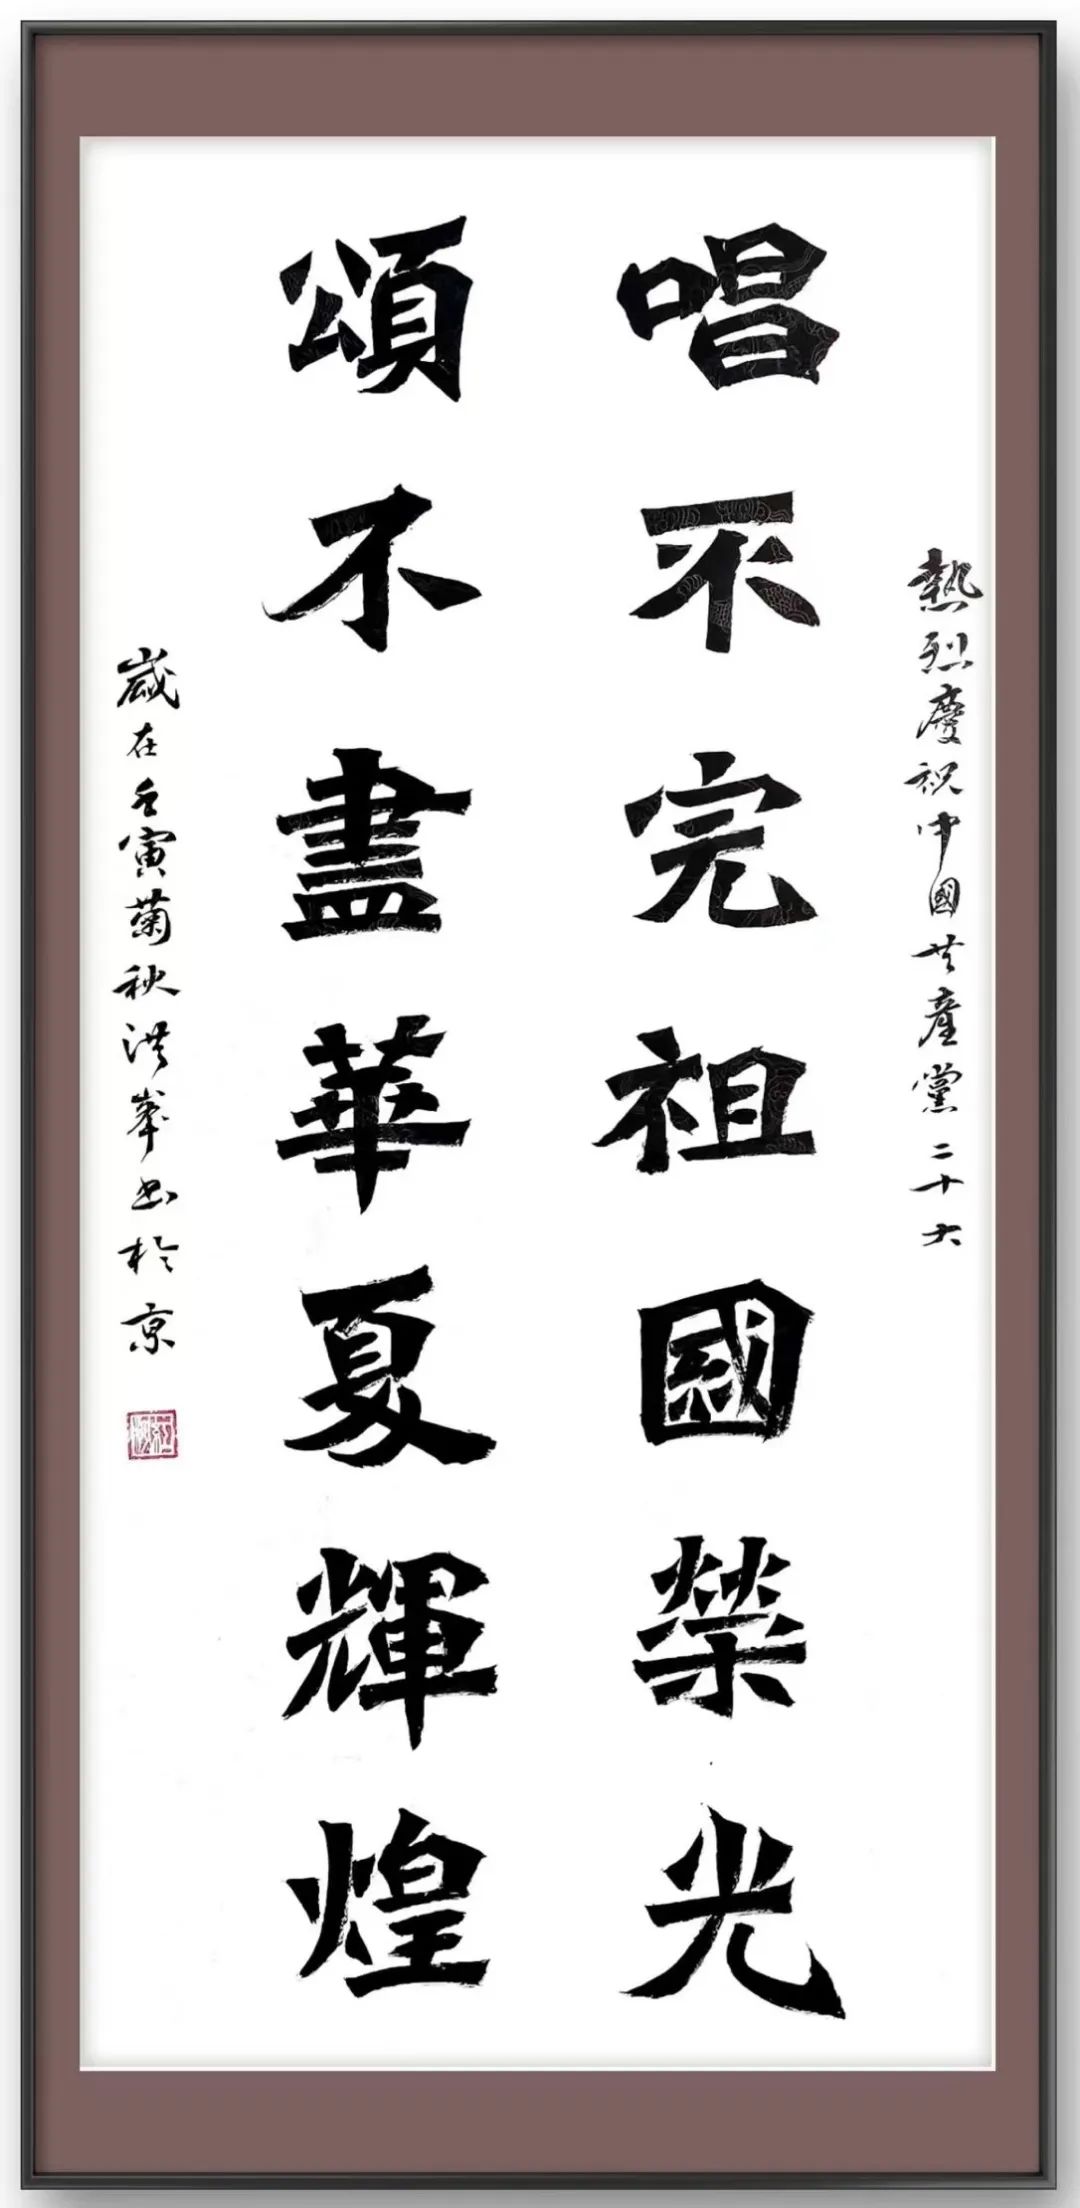 熱烈慶祝中國共產黨二十大
唱不完祖國榮光
頌不盡華夏輝煌
歲在壬寅菊秋洪峯书於京